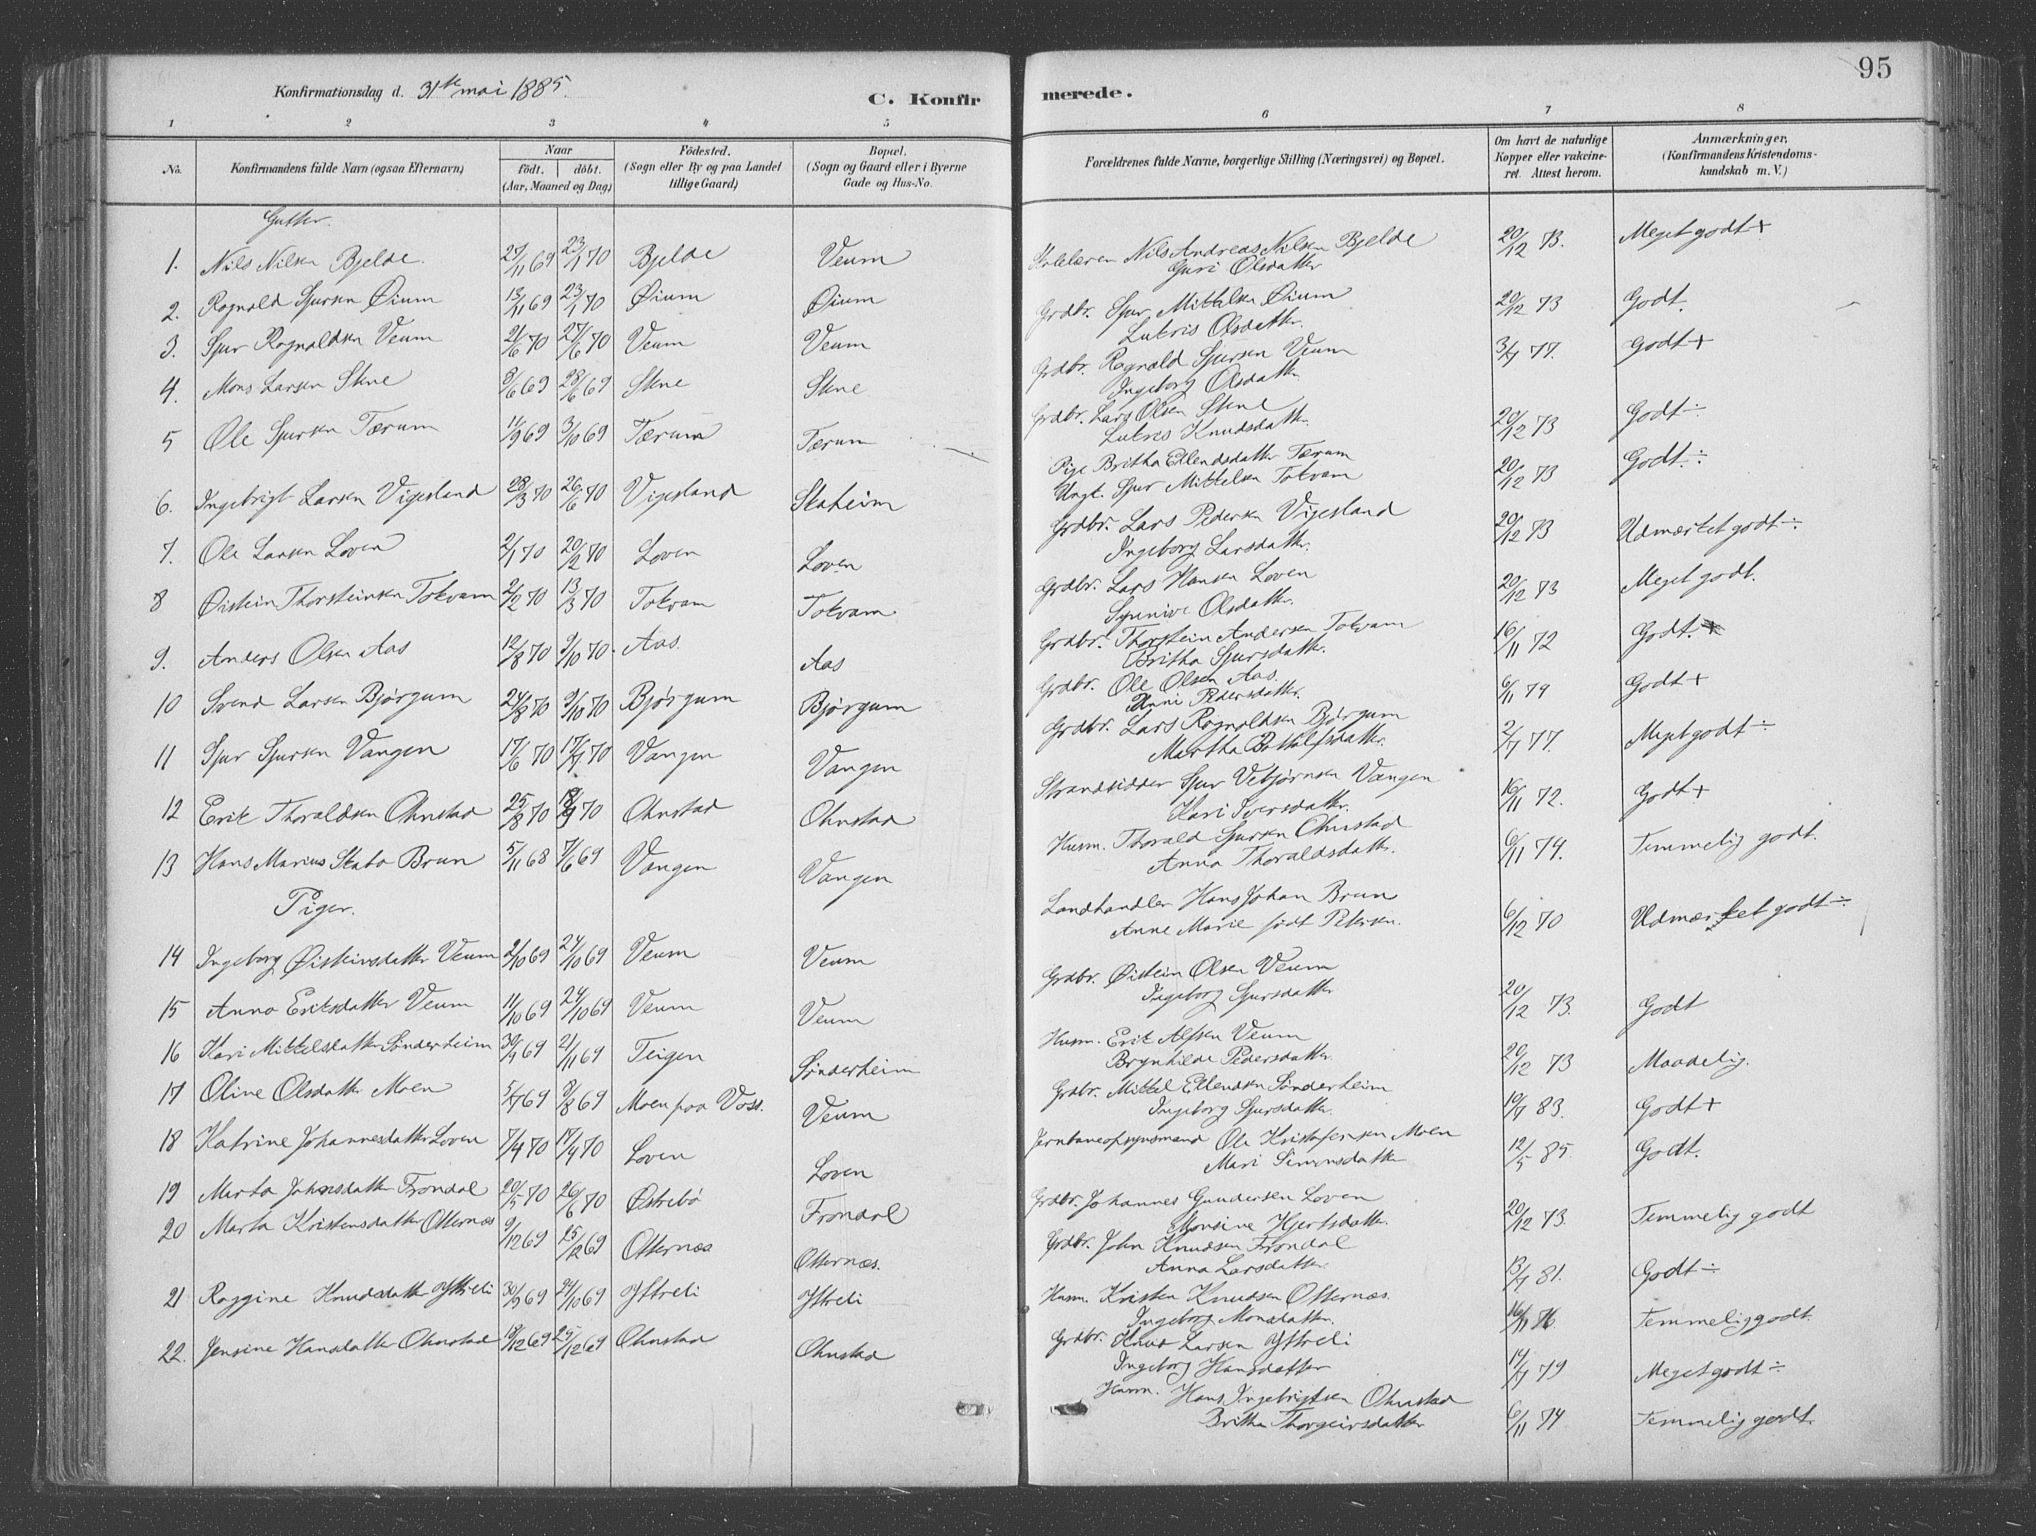 95
Konfirmationsdag d. 31te mai 1885.
C. Konfirmerede.
1 2 3 4 5 6 7 8
No. Konfirmandens fulde Navn (ogsaa Efternavn) Naar födt. döbt. (Aar, Maaned og Dag) Födested. (Sogn eller By og paa Landet tillige Gaard) Bopæl. (Sogn og Gaard eller i Byerne Gade og Hus-No. Forældrenes fulde Navne, borgerlige Stilling (Næringsvei) og Bopæl. Om havt de naturlige Kopper eller vakcineret. Attest herom. Anmærkninger, (Konfirmandens Kristendomskundskab m. V.)
Gutter.
1. Nils Nilsen Bjelde. 27/11 69 23/1 70 Bjelde Veum Skolelæren Nils Andreas Nilsen Bjelde 20/12 73. Meget godt +
Guri Olsdatter
2. Rognald Sjursen Øium 13/11 69 23/1 70 Øium Øium Grdbr. Sjur Mittelsen Øium 20/12 73 Godt.
Lukris Olsdatter.
3. Sjur Rognaldsen Veum 2/6 70 27/6 70 Veum Veum Grdbr. Rognald Sjursen Veum 3/7 77. Godt +
Ingeborg Olsdatter
4. Mons Larsen Skne 8/6 69 28/6 69 Skne Skne Grdbr. Lars Olsen Skne 20/12 73 Godt ÷
Lukris Knudsdatter
5 Ole Sjursen Tærum 11/9 69 3/10 69 Tærum Tærum Pige Britha Ellendsdatter Tærum 20/12 73 Godt ÷
Ungk. Sjur Mittelsen Tokvam
6. Ingebrigt Larsen Vigesland 28/3 70 26/6 70 Vigesland Skaheim Grdbr. Lars Pedersen Vigesland 20/12 73 Udmærket godt ÷
Ingeborg Larsdatter.
7. Ole Larsen Loven 2/1 70 20/2 70 Loven Loven Grdbr. Lars Hansen Loven 20/12 73 Meget godt.
Synnive Olsdatter.
8 Øistein Thorsteinsen Tokvam 2/2 70 13/3 70 Tokvam Tokvam Grdbr. Thorstein Andersen Tokvam 16/11 72 Godt.
Britha Sjursdatter.
9. Anders Olsen Aas 12/8 70 9/10 70 Aas Aas Grdbr. Ole Olsen Aas. 6/11 74 Godt +
Anni Pedersdatter.
10 Svend Larsen Bjørgum 24/8 70 9/10 70 Bjørgum Bjørgum Grdbr. Lars Rognaldsen Bjørgum 2/7 77. Meget godt ÷
Martha Bottolfsdatter.
11 Sjur Sjursen Vangen 17/6 70 17/7 70 Vangen Vangen Strandsidder Sjur Vebjørnsen Vangen 16/11 72. Godt +
Kari Iversdatter.
12 Erik Thoraldsen Ohnstad 25/8 70 18/9 70 Ohnstad Ohnstad Husm. Thorald Sjursen Ohnstad 6/11 74. Temmelig godt.
Anna Thoraldsdatter.
13 Hans Marius Skabo Brun 5/11 68 7/6 69 Vangen Vangen Landhandler Hans Johan Brun 6/12 70 Udmærket godt ÷
Anne Marie født Petersen.
Piger.
14 Ingeborg Øisteinsdatter Veum 2/10 69 24/10 69 Veum Veum Grdbr. Øistein Olsen Veum 20/12 73. Godt
Ingeborg Sjursdatter
15 Anna Eriksdatter Veum 11/10 69 24/10 69 Veum Veum Husm. Erik Alfsen Veum 20/12 73 Maadelig.
Brynhilde Pedersdatter.
16 Kari Mittelsdatter Sønderheim 30/9 69 21/11 69 Teigen Sønderheim Grdbr. Mittel Ellendsen Sønderheim 19/7 83. Godt +
Ingeborg Sjursdatter.
17 Oline Olsdatter Moen 5/7 69 8/8 69 Moen paa Voss. Veum Jernbaneopsynsmand Ole Kristofersen Moen 12/5 85. Godt.
Mari Simonsdatter
18 Katrine Johannesdatter Loven 7/4 70 17/4 70 Loven Loven Grdbr. Johannes Gundersen Loven 20/12 73. Temmelig godt
Monsine Hjertsdatter.
19 Marta Johnsdatter Frondal 20/5 70 26/6 70 Østrebø Frondal Grdbr. John Knudsen Frondal 13/7 81. Godt ÷
Anna Larsdatter.
20 Marta Kristensdatter Otternæs 9/12 69 25/12 69 Otternæs Otternæs. Husm. Kristen Knudsen Otternæs. 16/11 76. Temmelig godt.
Ingeborg Monsdatter.
21 Raggine Knudsdatter Yttreli 30/9 69 24/10 69 Yttreli Yttreli Grdbr. Knud Larsen Yttreli 14/7 79 Meget godt ÷
Ingeborg Hansdatter
22. Jensine Hansdatter Ohnstad 18/12 69 25/12 69 Ohnstad Ohnstad Husm. Hans Ingebrigtsen Ohnstad 6/11 74 Temmelig godt.
Britha Thorgeirsdatter